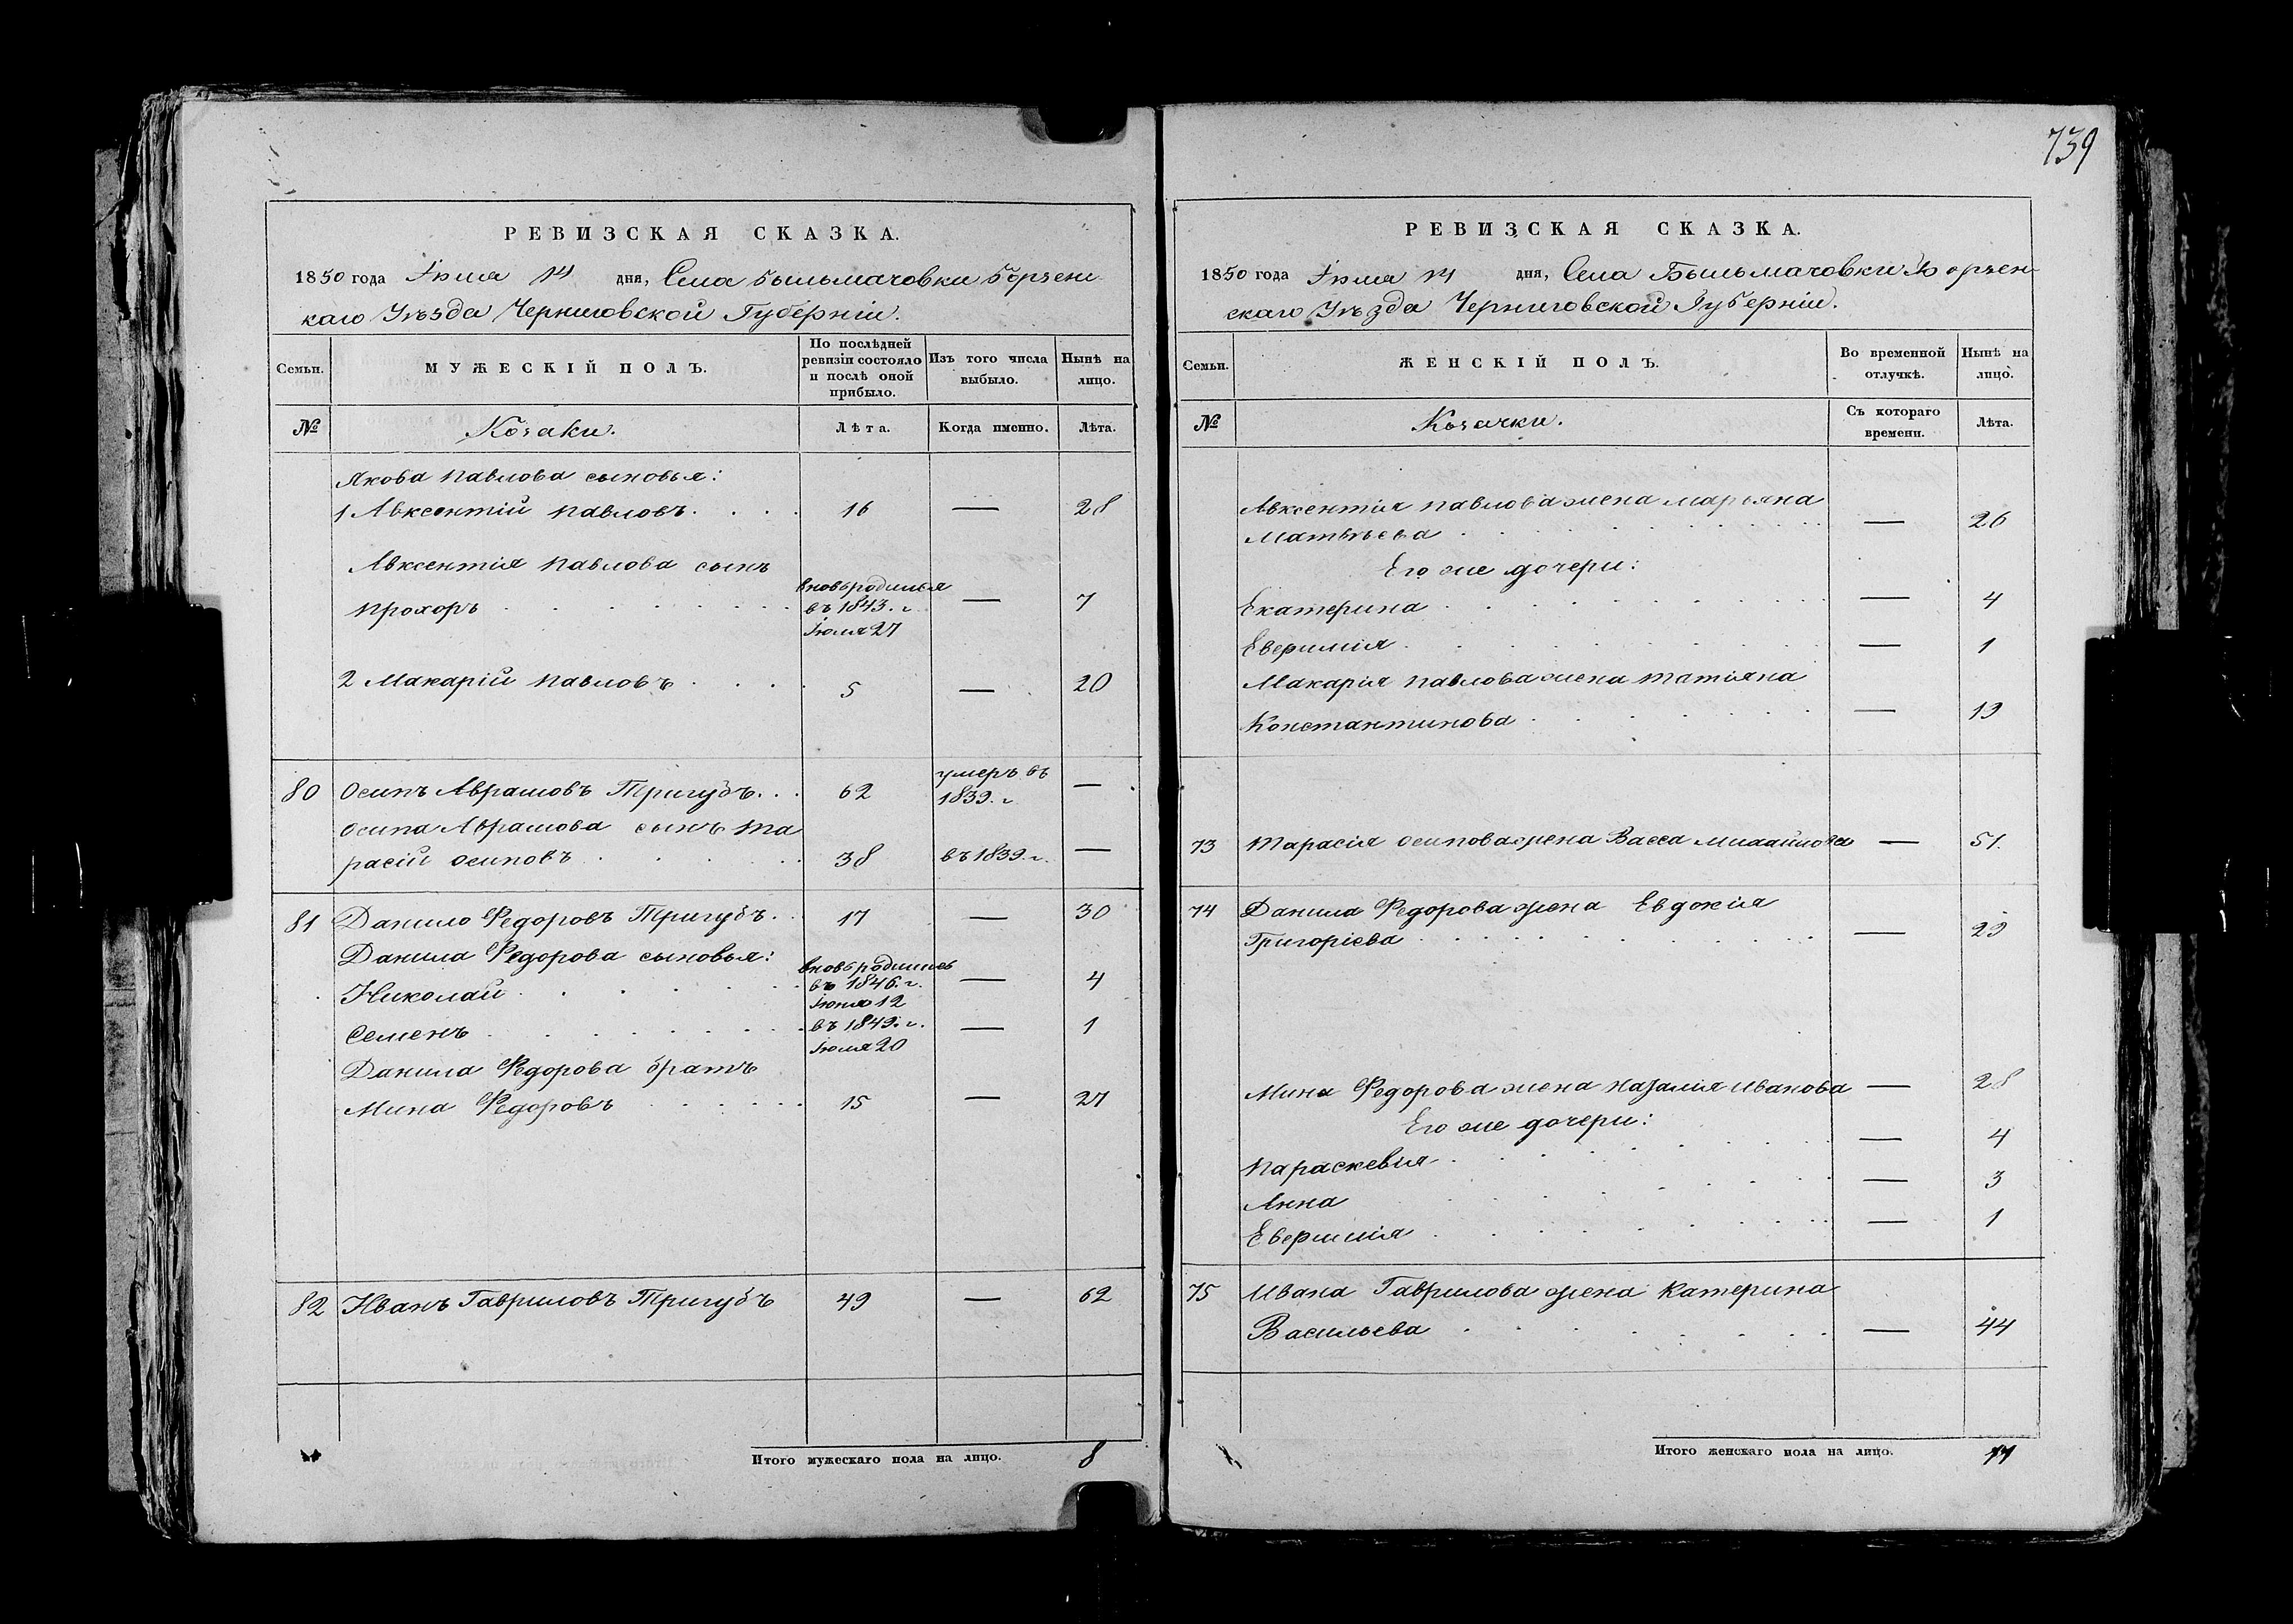 739
РЕВИЗСКАЯ СКАЗКА.
1850 года Іюля 14 дня, Села Быльмачовки Борзен-
каго Уѣзда Черниговской Губерніи.
Семьи.
МУЖЕСКІЙ ПОЛЪ.
По послѣдней ревизіи состояло и послѣ оной прибыло.
Изъ того числа выбыло.
Нынѣ на лицо.
№
Козаки.
Лѣта.
Когда именно.
Лѣта.
Якова Павлова сыновья:
1 Авксентій Павловъ. 16 — 28
Авксентія Павлова сынъ
Прохоръ вновь родился въ 1843. г. Іюля 27 — 7
2 Макарій Павловъ 5 — 20
80 Осипъ Аврамовъ Тригубъ. 62 умеръ въ 1839. г. —
Осипа Аврамова сынъ Та
расій Осиповъ 38 въ 1839. г. —
81 Данило Федоровъ Тригубъ. 17 — 30
Данила Федорова сыновья:
Николай вновь родились въ 1846. г. Іюня 12 — 4
Семенъ въ 1849. г. Іюля 20 — 1
Данила Федорова братъ
Мина Федоровъ 15 — 27
82 Иванъ Гавриловъ Тригубъ 49 — 62
Итого мужескаго пола на лицо. 8
РЕВИЗСКАЯ СКАЗКА.
1850 года Іюля 14 дня, Села Быльмачовки Борзен-
скаго Уѣзда Черниговской Губерніи.
Семьи.
ЖЕНСКІЙ ПОЛЪ.
Во временной отлучкѣ.
Нынѣ на лицо.
№
Козачки.
Съ котораго времени.
Лѣта.
Авксентія Павлова жена Марьяна
Матвѣева — 26
Его же дочери:
Екатерина — 4
Евфимія — 1
Макарія Павлова жена Татіяна
Константинова — 19
73 Тарасія Осипова жена Васса Михайлова — 51.
74 Данила Федорова жена Евдокія
Григоріева — 29
Мина Федорова жена Наталія Иванова — 28
Его же дочери:
Параскевія — 4
Анна — 3
Евфимія — 1
75 Ивана Гаврилова жена Катерина
Васильева — 44
Итого женскаго пола на лицо. 11